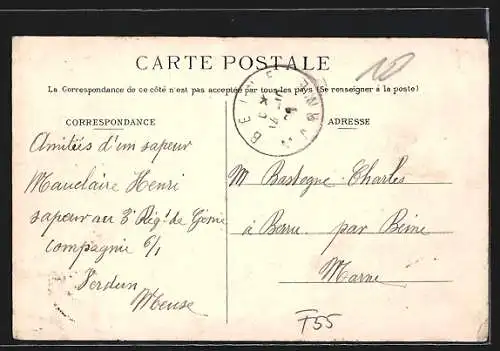 CARTE POSTALE
La Correspondance de ce côté n'est pas acceptée par tous les pays (Se renseigner à la poste)
CORRESPONDANCE
Amitiés d'un sapeur
Mauclaire Henri
sapeur au 3e Régt de Génie
compagnie 6/1
Verdun
Meuse
BEINE
MARNE
ADRESSE
M Bastogne Charles
à Berru par Beine
Marne
F55